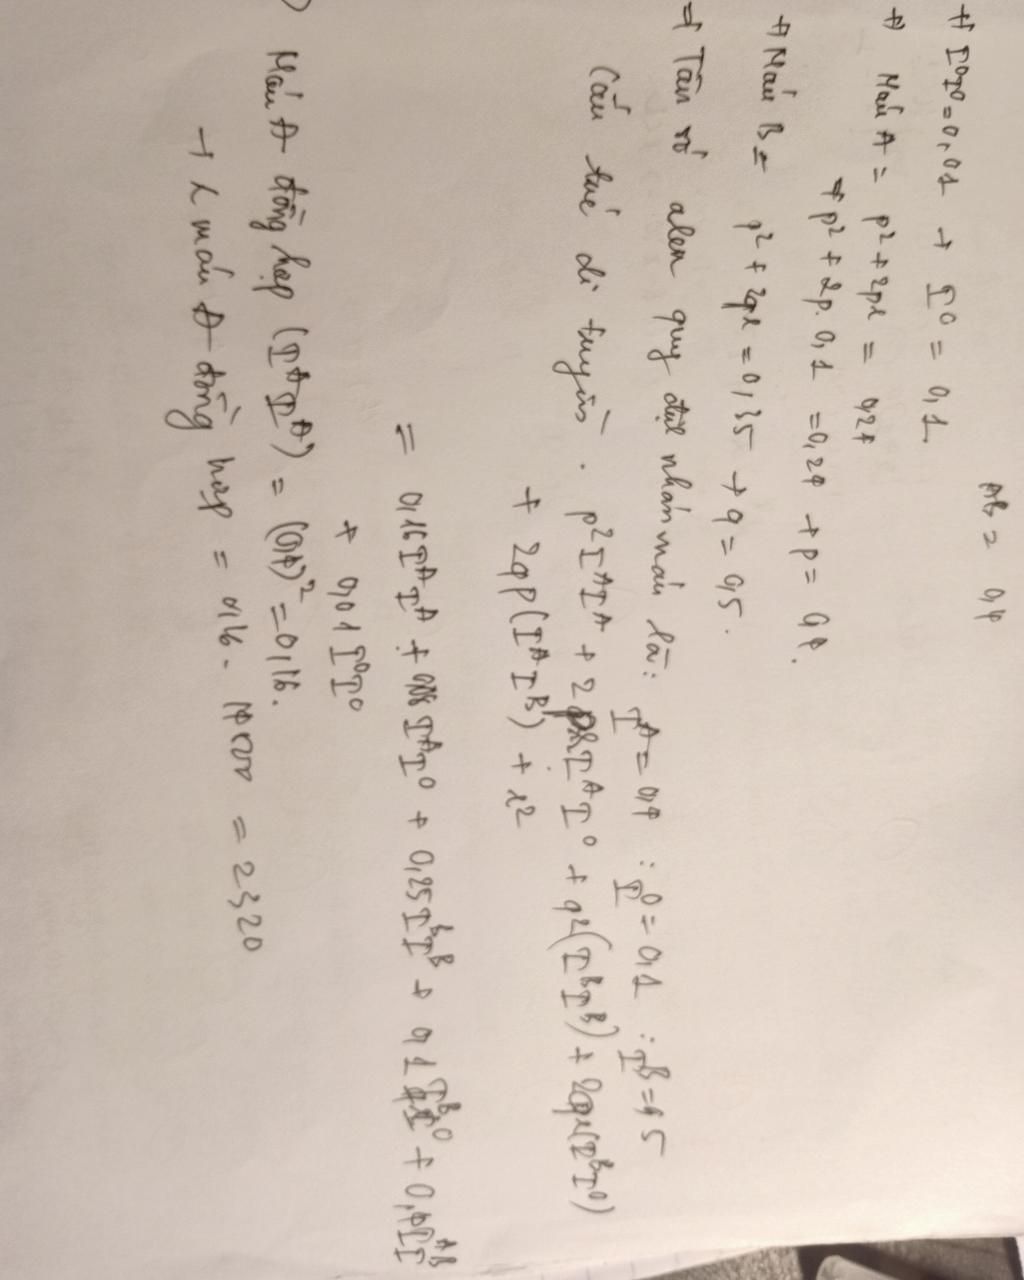 AB = 0,4
+) I⁰I⁰ = 0,01 → I⁰ = 0,1
+) Máu A = p² + 2pr = 0,24
→ p² + 2p. 0,1 = 0,24 → p = 0,4.
+) Máu B = p² + 2qr = 0,35 → q = 0,5.
⇒ Tần số alen quy định nhóm máu là: Iᴬ = 0,4 : I⁰ = 0,1 : Iᴮ = 0,5
Cấu trúc di truyền. p² IᴬIᴬ + 2prIᴬI⁰ + q²(IᴮIᴮ) + 2qr(IᴮI⁰)
+ 2qp(IᴬIᴮ) + r²
= 0,16IᴬIᴬ + 0,08 IᴬI⁰ + 0,25IᴮIᴮ + 0,1 IᴮI⁰ + 0,4IᴬIᴮ
+ 0,01 I⁰I⁰
) Máu A đồng hợp (IᴬIᴬ) = (0,4)² = 0,16.
→ máu A đồng hợp = 0,16. = 2320